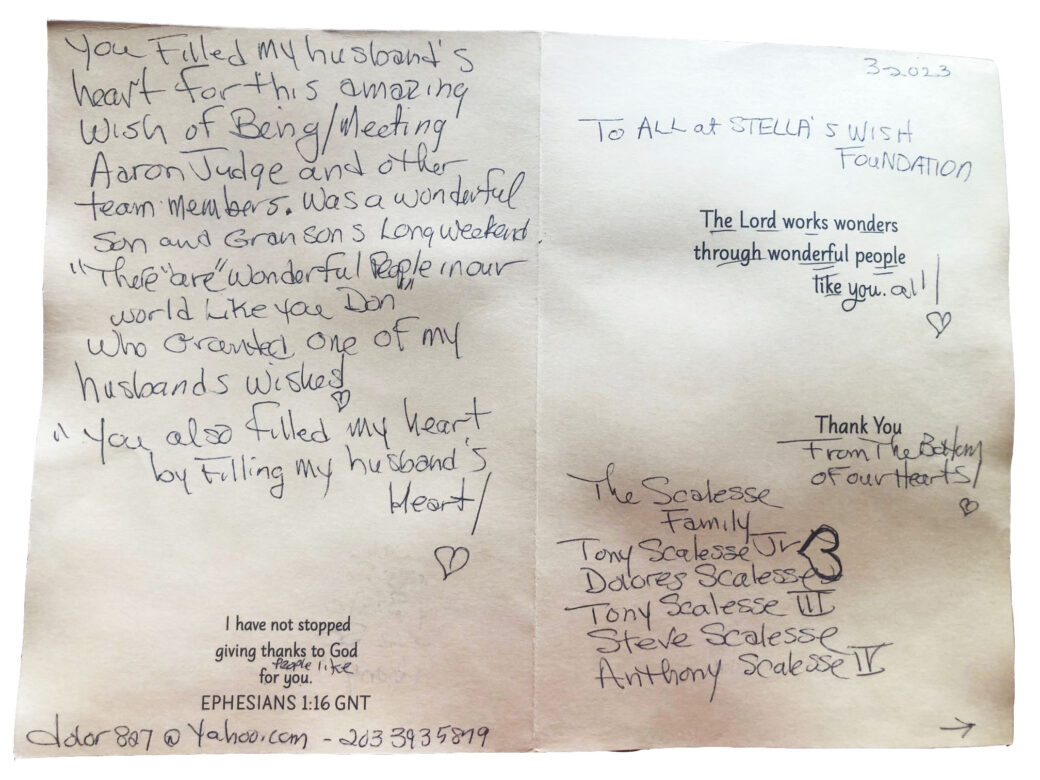 You Filled my husband's
heart for this amazing
Wish of Being/Meeting
Aaron Judge and other
team members. Was a wonderful
Son and Granson's Long weekend.
"There "are" wonderful People in our
world Like you Don"
who Granted one of my
husbands wishes!
"You also filled my heart
by Filling my husband's
Heart!
I have not stopped
giving thanks to God
people like
for you.
EPHESIANS 1:16 GNT
dolor827@Yahoo.com - 203 393 5879
3-2023
To ALL at STELLA'S WISH
FOUNDATION
The Lord works wonders
through wonderful people
like you. all!
Thank You
From The Bottom
of our Hearts!
The Scalesse
Family
Tony Scalesse Jr
Dolores Scalesse
Tony Scalesse III
Steve Scalesse
Anthony Scalesse IV